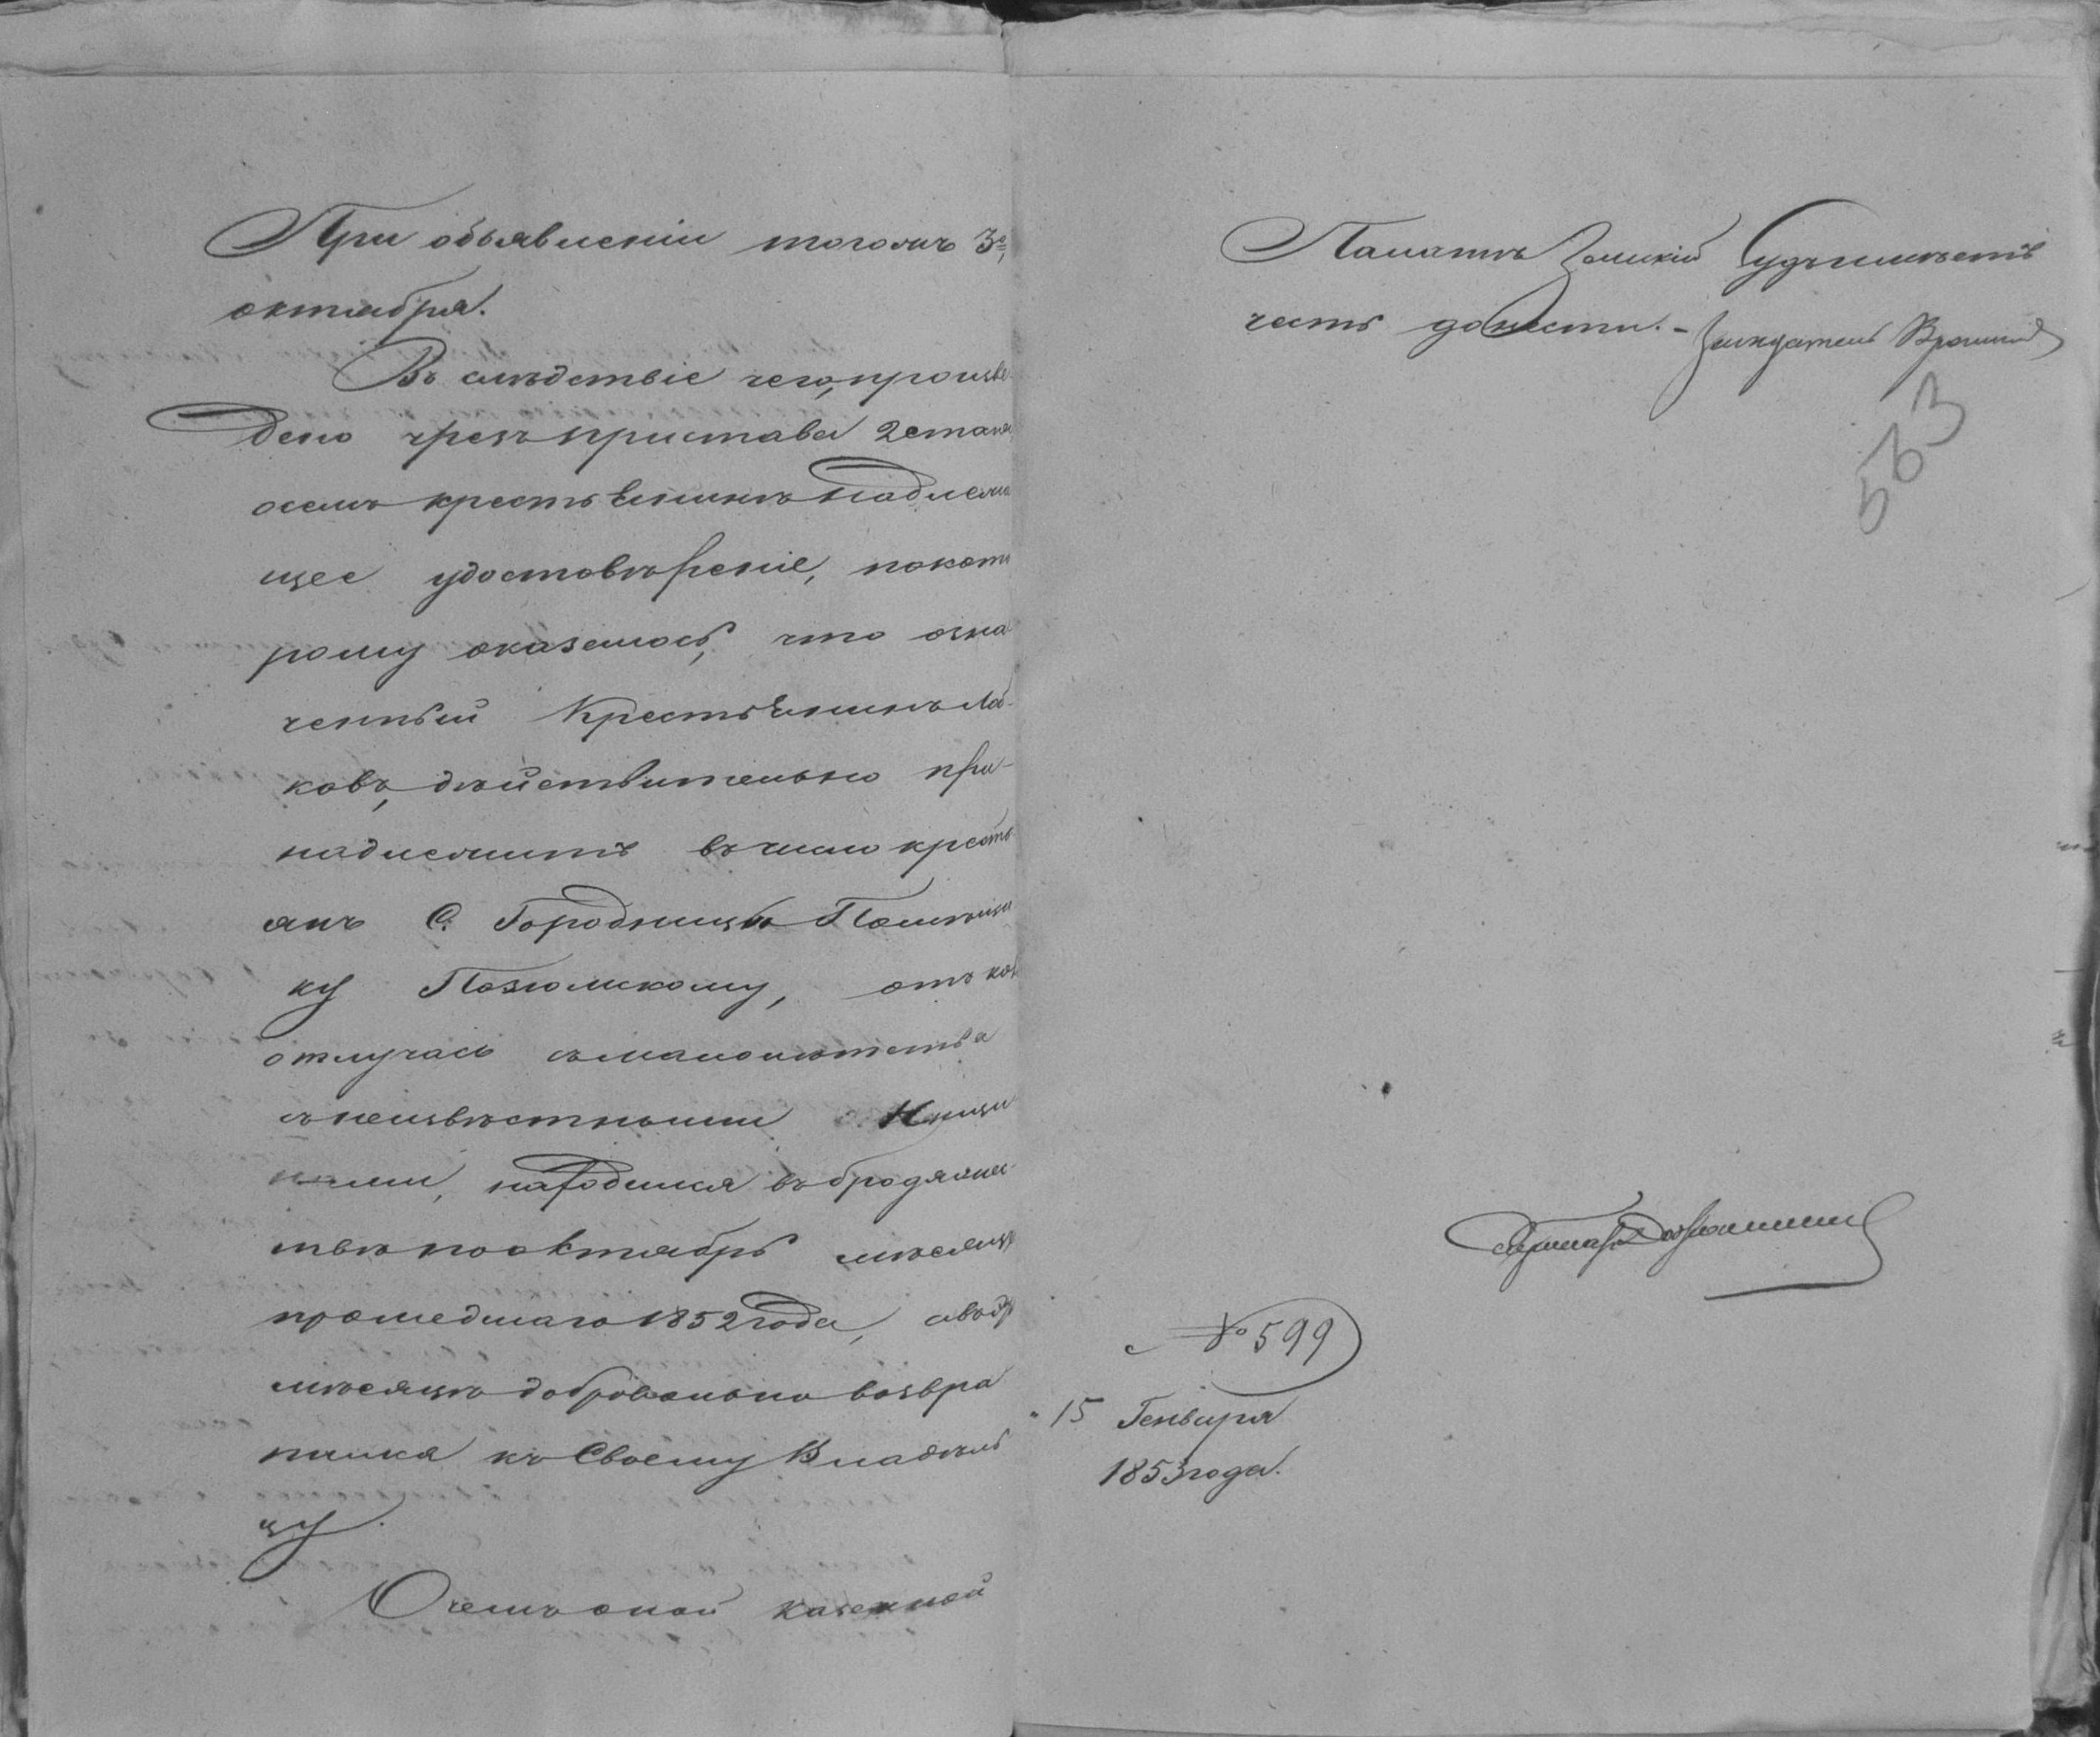 При объявленіи тогожъ 3е
октября.
Въ слѣдствіе чего, произве
дено чрезъ пристава 2 стана
осемъ крестьянинѣ надлежа
щее удостовѣреніе, покото
рому оказалось, что озна
ченный Крестьянинъ Ла-
ковъ, дѣйствительно при-
надлежитъ въ числѣ кресть
янъ С. Городницы Помѣщи
ку Позюмскому, отъ ков
отлучась съ малолѣтства
съ неизвѣстными Нищи
ми, находился въ бродяжни
твѣ по октябрь мѣсяцъ
прошедшаго 1852 года,
мѣсяцѣ добровольно возвра
тился къ Своему Владѣль
цу.
О чемъ оной казенной
Палатѣ Земскій Судъ имѣетъ
честь донести. - Засѣдатель
563
№ 599
" 15 Генваря
1853 года.